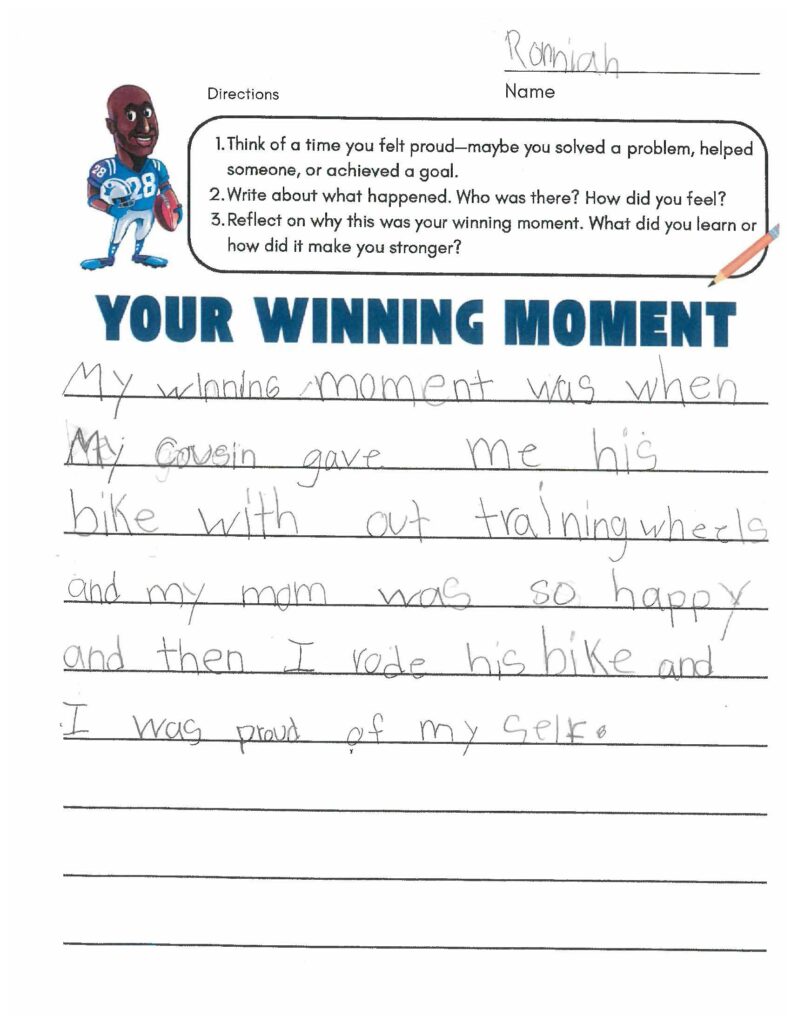 Romniah
Directions
Name
1. Think of a time you felt proud—maybe you solved a problem, helped
someone, or achieved a goal.
2. Write about what happened. Who was there? How did you feel?
3. Reflect on why this was your winning moment. What did you learn or
how did it make you stronger?
28
28
YOUR WINNING MOMENT
My winning moment was when
My cousin gave me his
bike with out training wheels
and my mom was so happy
and then I rode his bike and
I was proud of my self.